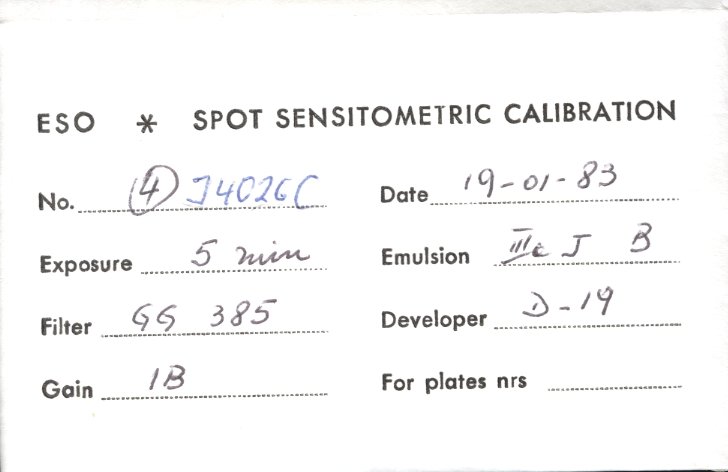 ESO * SPOT SENSITOMETRIC CALIBRATION
No. 4 J4026C Date 19-01-83
Exposure 5 min Emulsion IIIa J B
Filter GG 385 Developer D-19
Gain 1B For plates nrs